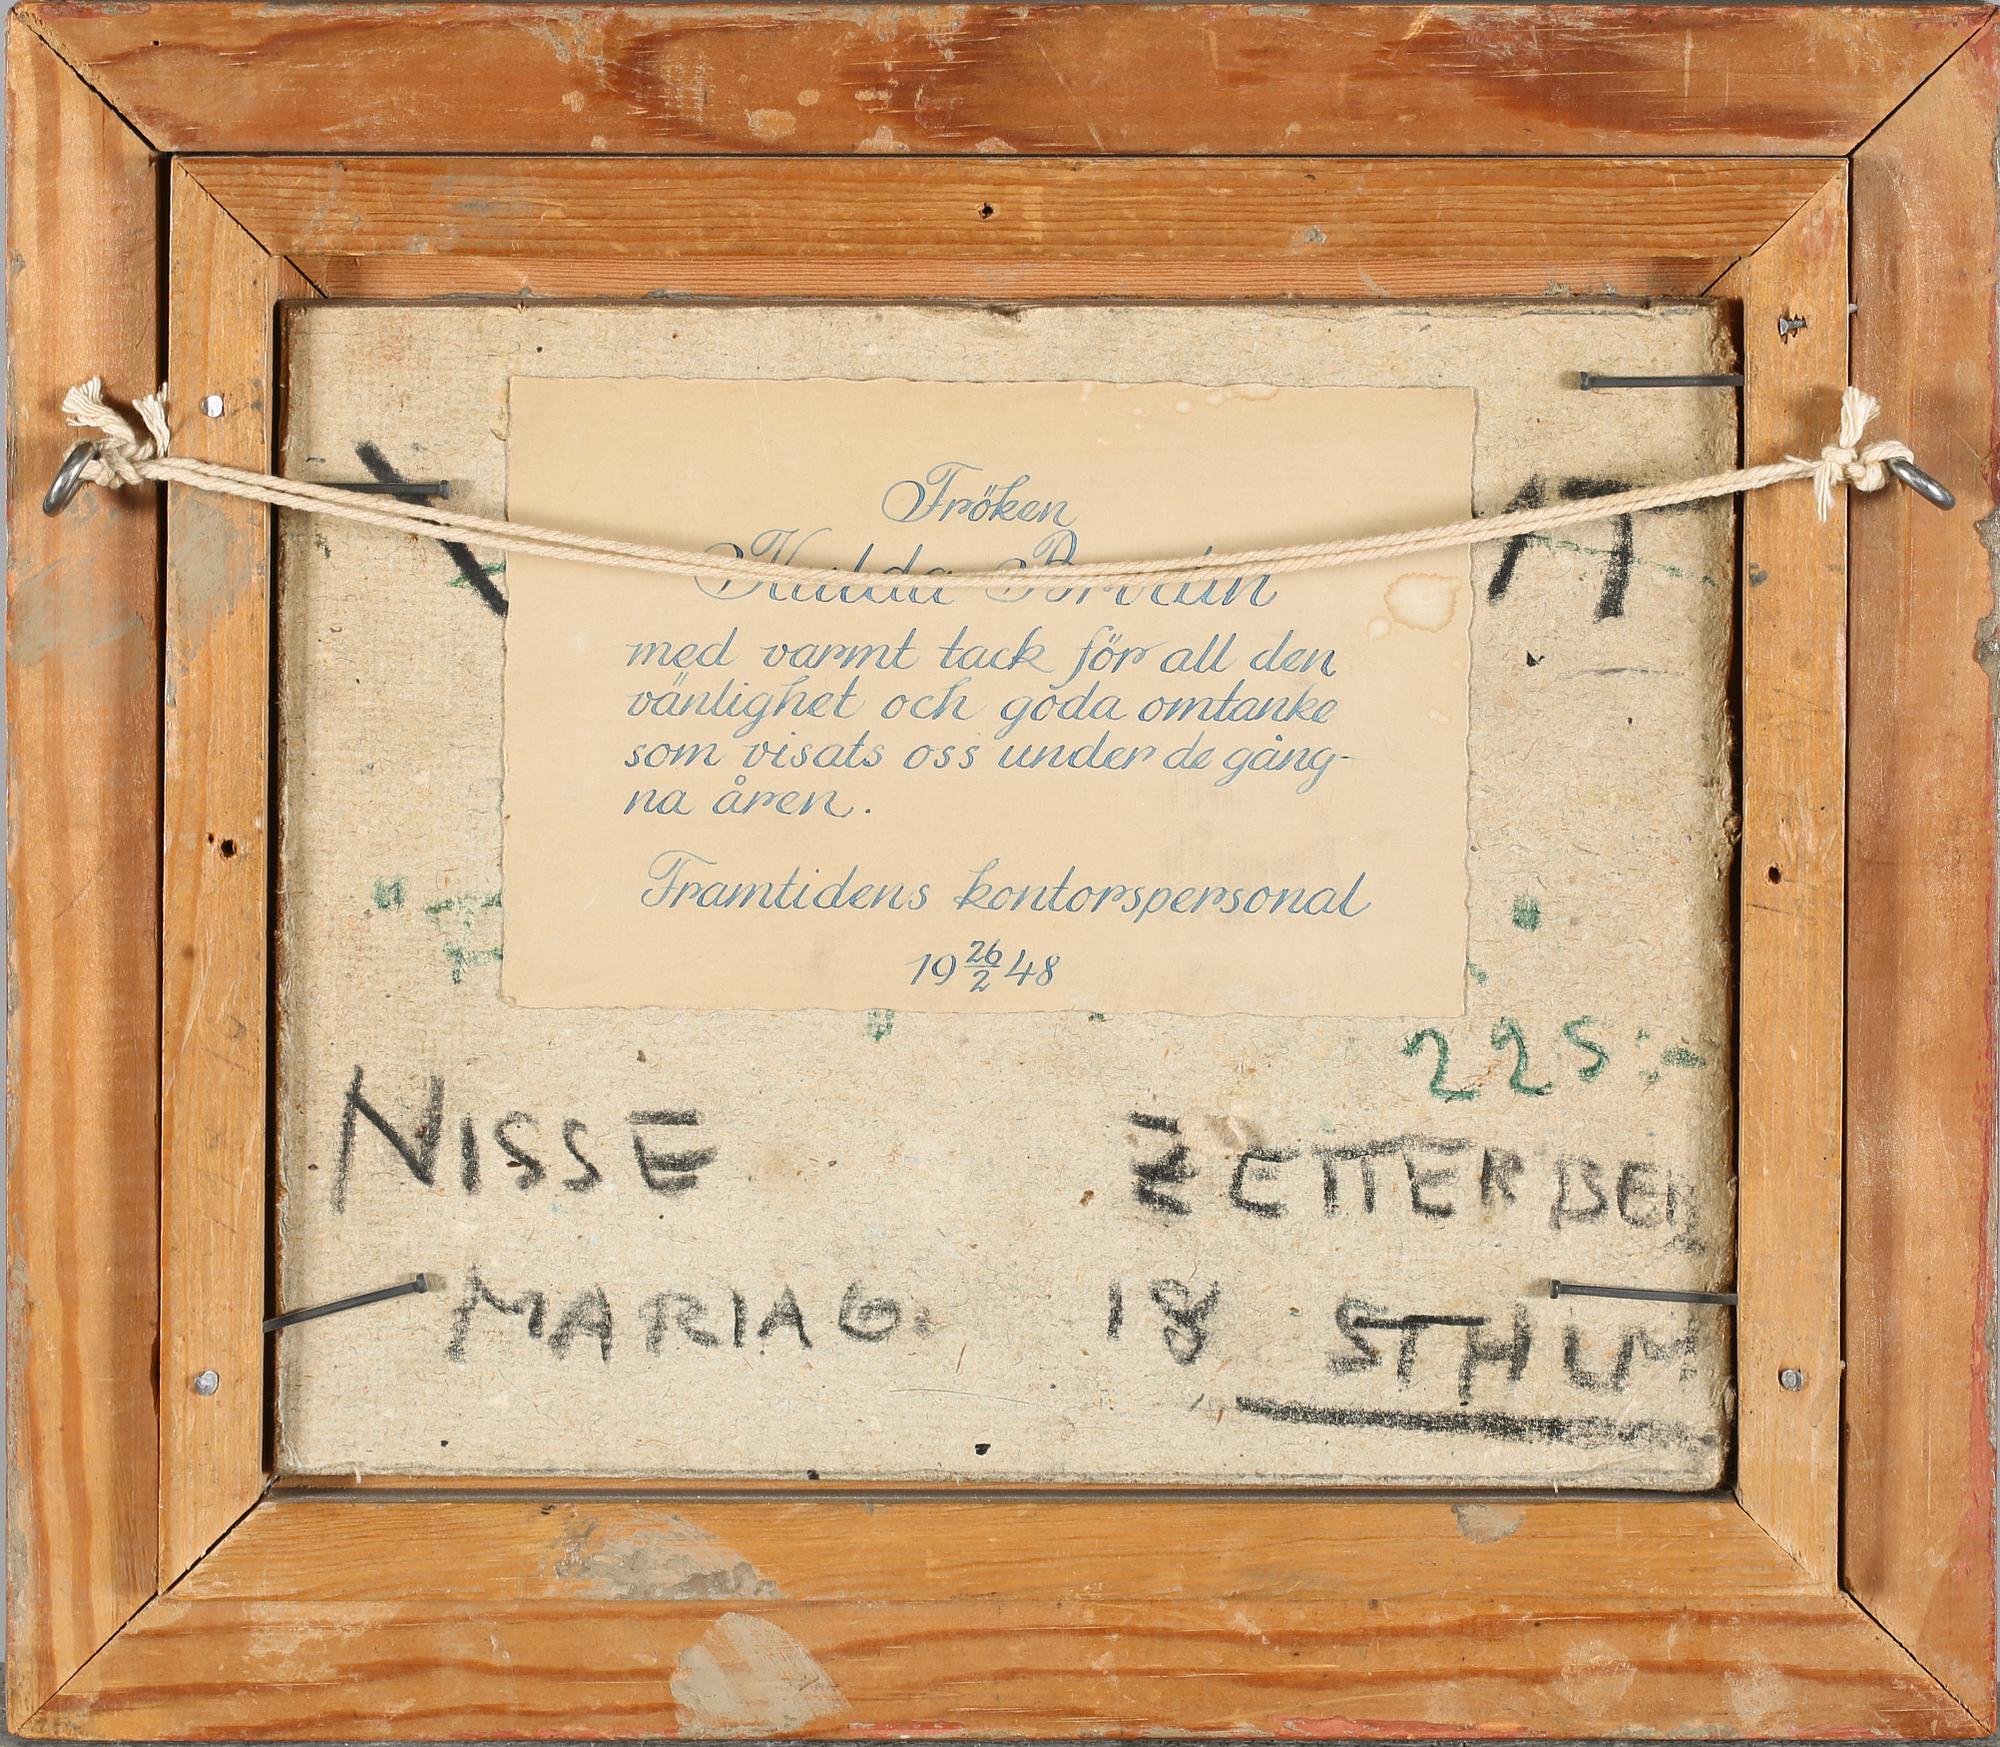 Fröken
med varmt tack för all den
vänlighet och goda omtanke
som visats oss under de gång-
na åren.
Framtidens kontorspersonal
19 26/2 48
225:-
NISSE ZETTERBER
MARIAG. 18 STHLM